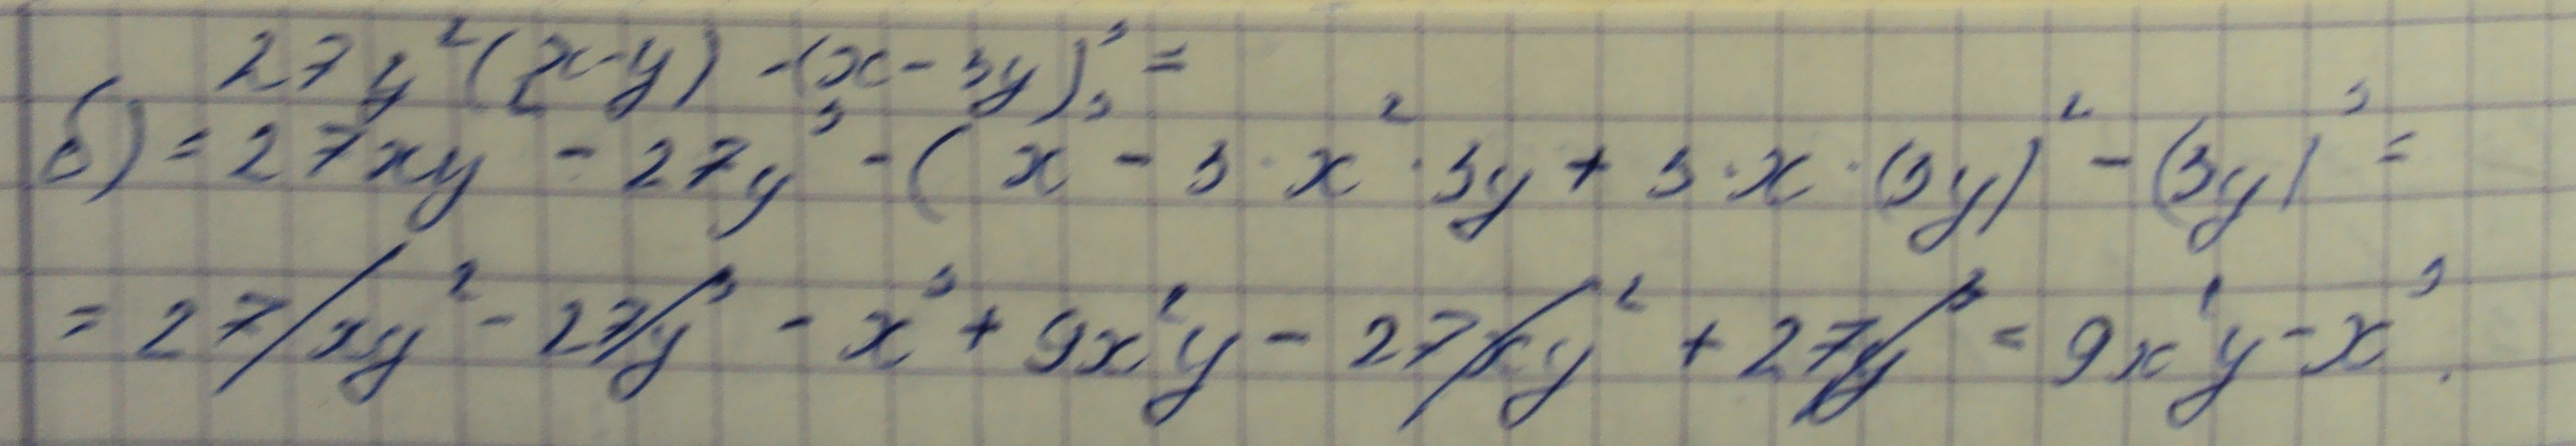 27y²(x-y) -(x-3y)³ =
б) = 27xy - 27y³ - (x³ - 3·x²·3y + 3·x·(3y)² - (3y)³ =
= 27xy² - 27y³ - x³ + 9x²y - 27xy² + 27y³ = 9x²y - x³.